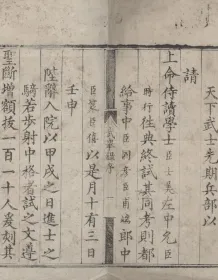 天下武士先期兵部以
請
上命侍讀學士臣士美左中允臣
時行往典終試其同考則都
給事中臣 郎中
武舉錄序 一
臣 臣 以是月十有三日
壬申
陛辭入院以甲戌之日進士之
騎若步射中格者試之文遵
聖斷增額拔一百一十人爰刻其